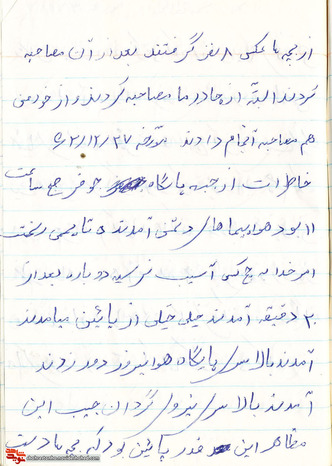 از بچه ها عکس ۸ نفر گرفتند بعد از آن مصاحبه
کردند البته از چادر ما مصاحبه کردند و از خود من
هم مصاحبه انجام دادند مورخه ۶۲/۱۲/۲۷
خاطرات از جبهه پایگاه جوفیر صبح ساعت
۱۱ بود هواپیما های دشمن آمدند
امر خدا به هیچ کس آسیب نرسید دوباره بعد از
۲۰ دقیقه آمدند خیلی خیلی از پائین میامدند
آمدند بالا سر پایگاه هوانیروز دور زدند
آمدند بالا سر نیروی گردان حبیب ابن
مظاهر این قدر پائین بود که بچه ها دست